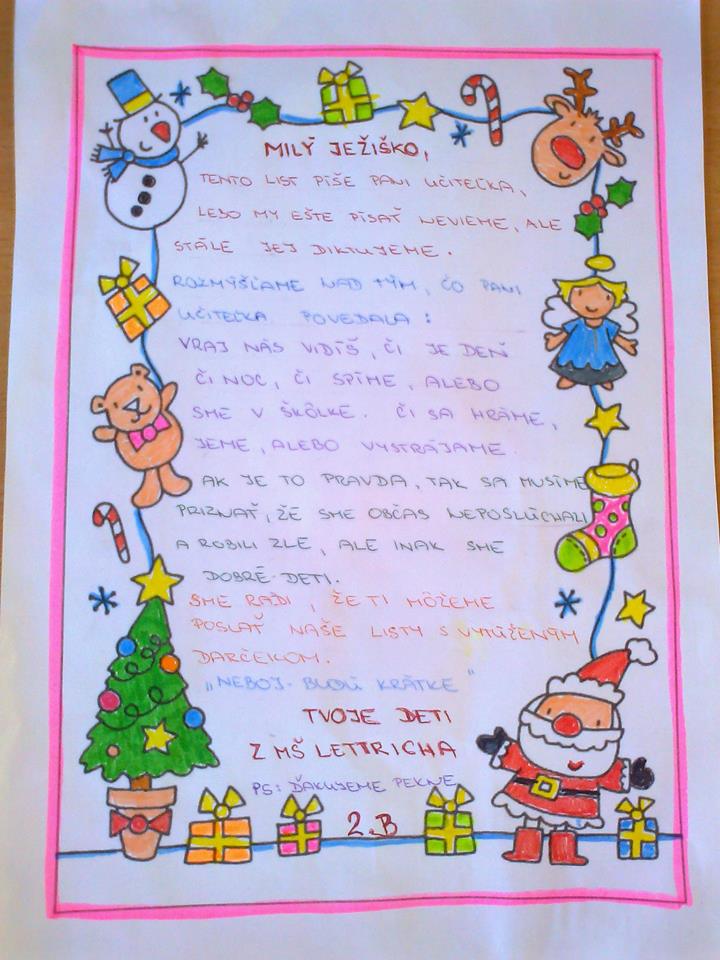 MILÝ JEŽIŠKO,
TENTO LIST PÍŠE PANI UČITEĽKA,
LEBO MY EŠTE PÍSAŤ NEVIEME, ALE
STÁLE JEJ DIKTUJEME.
ROZMÝŠĽAME NAD TÝM, ČO PANI
UČITEĽKA POVEDALA:
VRAJ NÁS VIDÍŠ, ČI JE DEŇ
ČI NOC, ČI SPÍME, ALEBO
SME V ŠKÔLKE. ČI SA HRÁME,
JEME, ALEBO VYSTRÁJAME.
AK JE TO PRAVDA, TAK SA MUSÍME
PRIZNAŤ, ŽE SME OBČAS NEPOSLÚCHALI
A ROBILI ZLE, ALE INAK SME
DOBRÉ DETI.
SME RADI, ŽE TI MÔŽEME
POSLAŤ NAŠE LISTY S VYTÚŽENÝM
DARČEKOM.
„NEBOJ - BUDÚ KRÁTKE"
TVOJE DETI
Z MŠ LETTRICHA
PS: ĎAKUJEME PEKNE
2.B